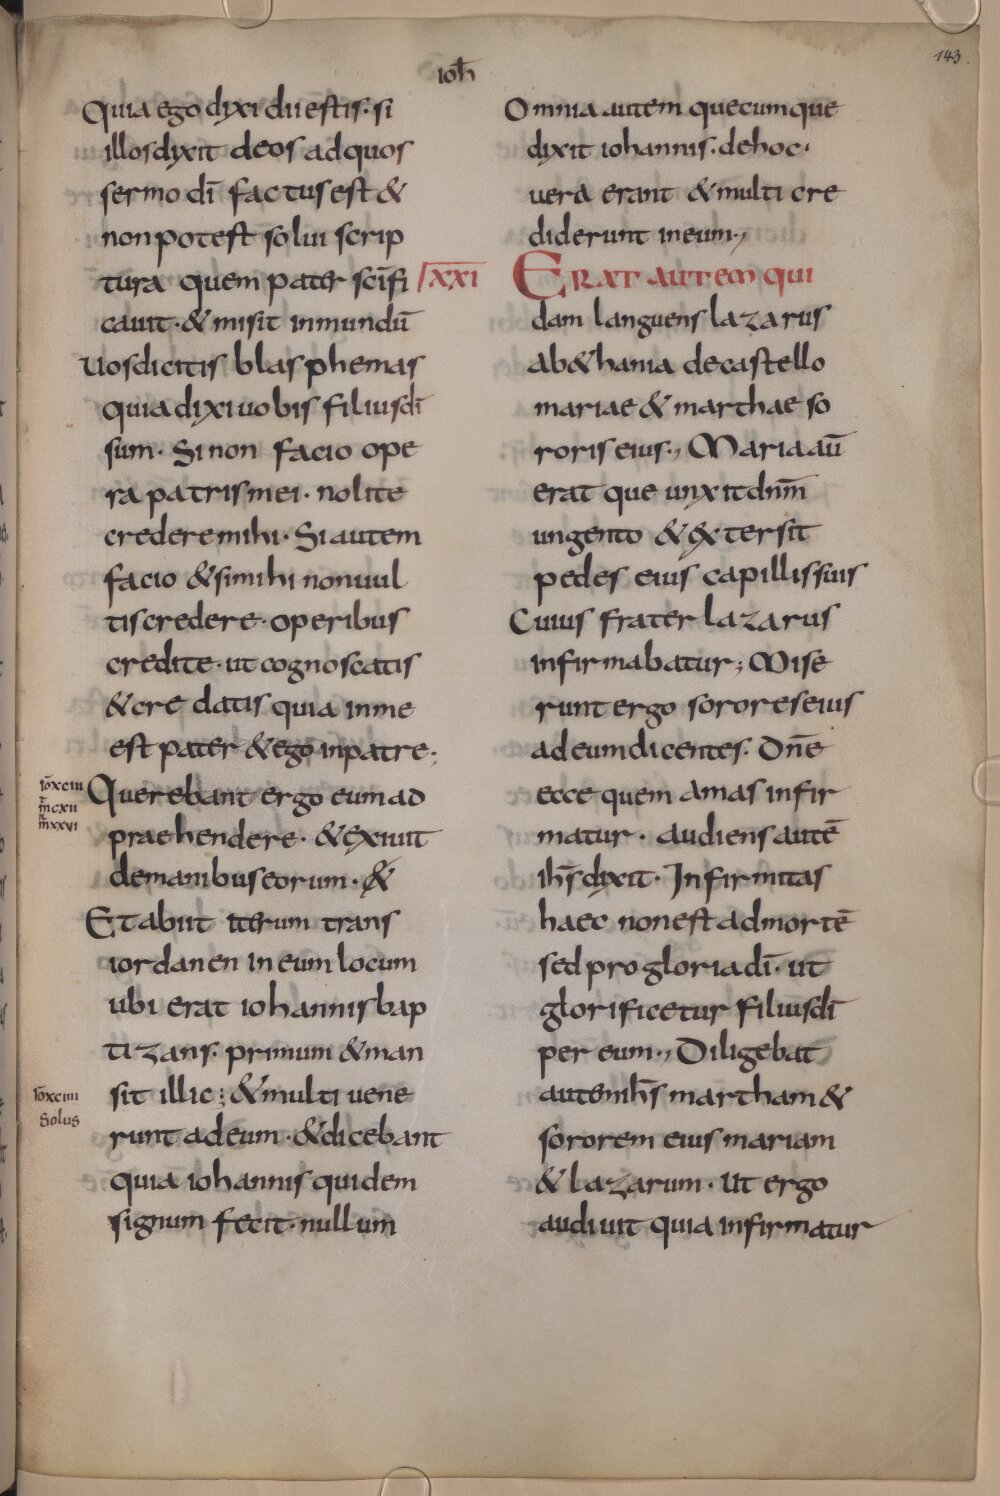 ioh̅
143.
Quia ego dixi dii estis · si
illos dixit deos ad quos
sermo dī factus est &
non potest solui scrip
tura quem pater scīfi
cauit · & misit in mundū
Uos dicitis blasphemas
quia dixi uobis filius dī
sum · Si non facio ope
ra patris mei · nolite
credere mihi · Si autem
facio & si mihi non uul
tis credere · operibus
credite · ut cognoscatis
& credatis quia in me
est pater & ego in patre ·
iōxciii
m̅cxii
m̅xxvi
Querebant ergo eum ad
praehendere · & exiuit
de manibus eorum · &
Et abiit iterum trans
iordanen in eum locum
ubi erat iohannis bap
tizans · primum & man
iōxciiii
Solus
sit illic ; & multi uene
runt ad eum · & dicebant
quia iohannis quidem
signum fecit · nullum
Omnia autem quecumque
dixit iohannis · de hoc ·
uera erant & multi cre
diderunt in eum ·,
XXI
ERAT AUTEM qui
dam languens lazarus
a b&hania de castello
mariae & marthae so
roris eius ·, Maria aū
erat que unxit dnm̅
ungento & extersit
pedes eius capillis suis
Cuius frater lazarus
infirmabatur ; Mise
runt ergo sorores eius
ad eum dicentes · Dnē
ecce quem amas infir
matur · audiens autē
ihs̅ dixit · Infirmitas
haec non est ad mortē
sed pro gloria dī · ut
glorificetur filius dī
per eum ·, Diligebat
autem ihs̅ martham &
sororem eius mariam
& lazarum · Ut ergo
audiuit quia infirmatur